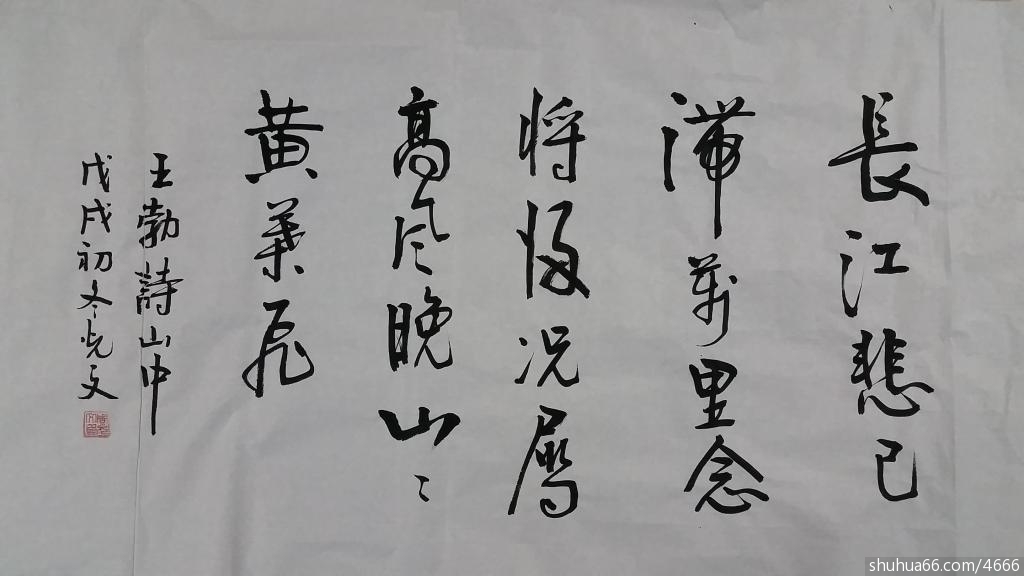 長江悲已
滞萬里念
将歸况屬
高风晚山〻
黄葉飛
王勃詩山中
戊戌初冬悦文
shuhua66.com/4666